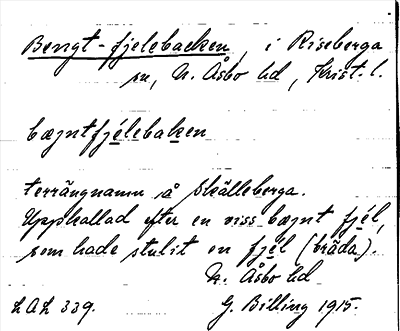 Bengt-fjelebacken, i Riseberga
sn, N. Åsbo hd, Krist. l.
bæntfjélebaken
terrängnamn å Skälleberga.
Uppkallad efter en viss bæjnt fjél,
som hade stulit en fjél (bräda).
N. Åsbo hd
LAL 339. G. Billing 1915.